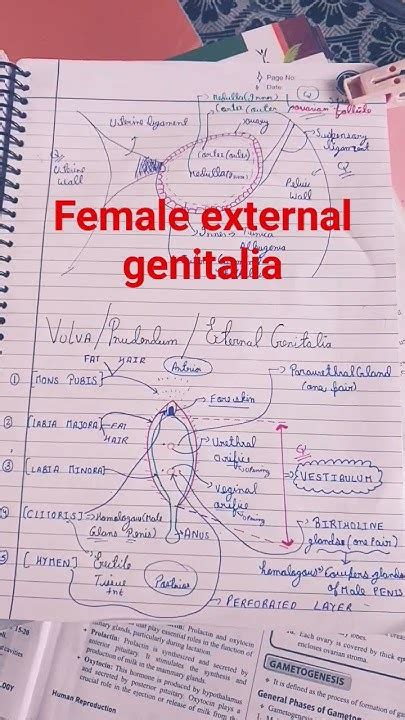 Page No.
Date
Medulla (Inner)
Cortex (outer)
ovary
Q
ovarian follicle
Uterine ligament
Suspensory
ligament
Q
Uterine
wall
Cortex (outer)
Medulla (Inner)
Q
Pelvic
wall
Female external
genitalia
Inner → Tunica
Albugenia
Volva / Prudendum / External Genitalia
FAT HAIR
Antrior
Paraurethral Gland
(one pair)
① [MONS PUBIS]
Foreskin
② [LABIA MAJORA] FAT
HAIR
Urethral
orifice
→ opening
Q
VESTIBULUM
③ [LABIA MINORA]
Veginal
orifice
→ opening
④ [CLITORIS] → Homologous (Male
Glans Penis)
ANUS
BIRTHOLINE
glandes (one Pair)
⑤ [HYMEN] Erectile
Tissue
Postrior
homologous Cowpers glands
of Male PENIS
PERFORATED LAYER
15-20
cavities
OLOGY
that play essential roles in the function of
mammary glands, particularly during lactation.
• Prolactin: Prolactin is synthesized and secreted by
anterior pituitary. It stimulates the synthesis and
production of milk in the mammary glands.
• Oxytocin: This hormone is produced by hypothalamus
and secreted by posterior pituitary. Oxytocin plays a
crucial role in the ejection or release of milk from
Human Reproduction
Each ovary is covered by thick
encloses ovarian stroma.
GAMETOGENESIS
• It is defined as the process of formation of
General Phases of Gametogenesis